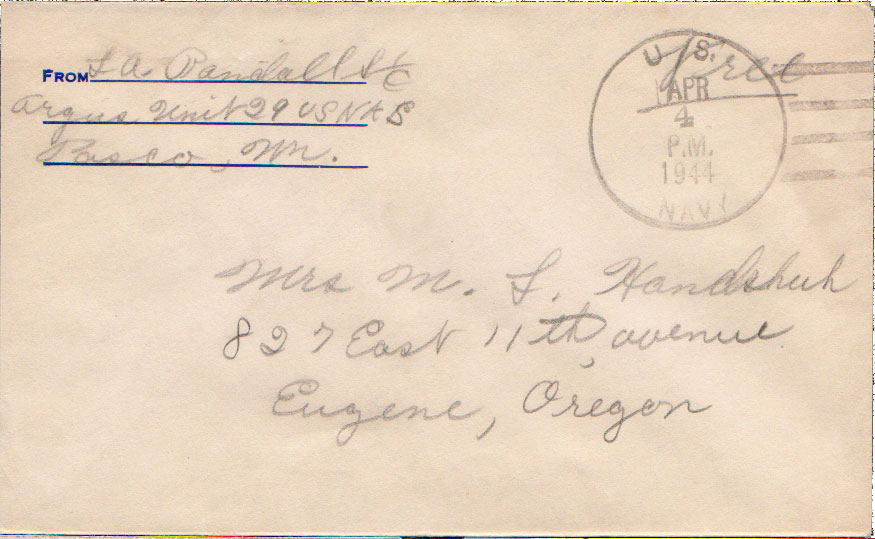 FROM L A Randall S 1/C
Argus Unit 29 USNAS
Pasco, Wn.
Free
U. S.
APR
4
P.M.
1944
NAVY
Mrs M. L. Handshuh
827 East 11th avenue
Eugene, Oregon